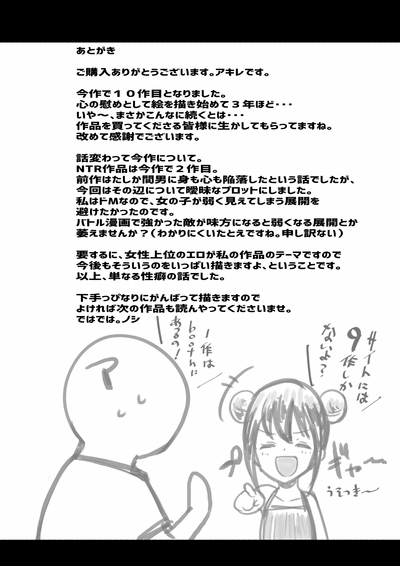 あとがき
ご購入ありがとうございます。アキレです。
今作で１０作目となりました。
心の慰めとして絵を描き始めて３年ほど・・・
いや～、まさかこんなに続くとは・・・
作品を買ってくださる皆様に生かしてもらってますね。
改めて感謝でございます。
話変わって今作について。
NTR作品は今作で２作目。
前作はたしか間男に身も心も陥落したという話でしたが、
今回はその辺について曖昧なプロットにしました。
私はドMなので、女の子が弱く見えてしまう展開を
避けたかったのです。
バトル漫画で強かった敵が味方になると弱くなる展開とか
萎えませんか？（わかりにくいたとえですね。申し訳ない）
要するに、女性上位のエロが私の作品のテーマですので
今後もそういうのをいっぱい描きますよ、ということです。
以上、単なる性癖の話でした。
下手っぴなりにがんばって描きますので
よければ次の作品も読んでやってくださいませ。
ではでは。ノシ
サイトには
９作しか
ないよ？
１作は
boothに
あるの！
ア
プ
ギャー
うそつき～